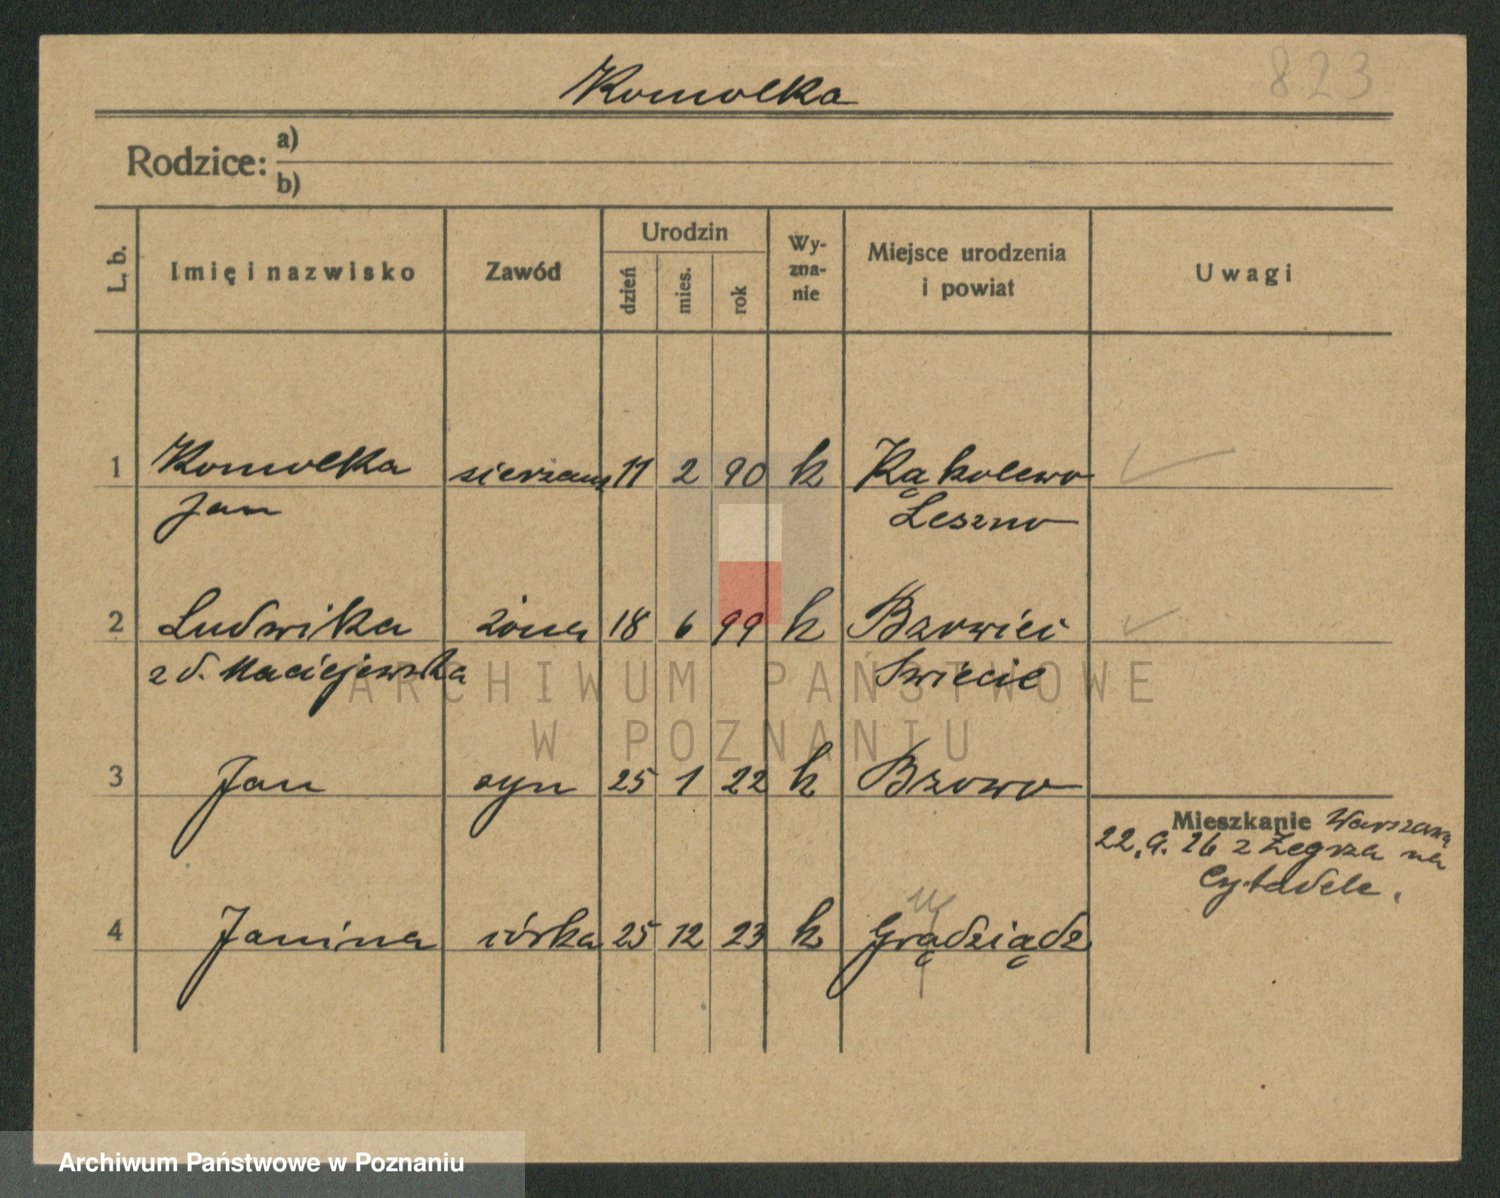 Komolka
823
Rodzice: a)
b)
L. b.
Imię i nazwisko
Zawód
Urodzin
dzień
mies.
rok
Wy-
zna-
nie
Miejsce urodzenia
i powiat
Uwagi
1 Komolka sierżant 11 2 90 k Kąkolewo
Jan Leszno
2 Ludwika żona 18 6 99 k Bzowiec
z d. Maciejewska Swiecie
3 Jan syn 25 1 22 k Bzowo
Mieszkanie Warszawa
22. 9. 26 z Zegrza na
Cytadele.
4 Janina córka 25 12 23 k Grądziądz
ARCHIWUM PAŃSTWOWE
W POZNANIU
Archiwum Państwowe w Poznaniu